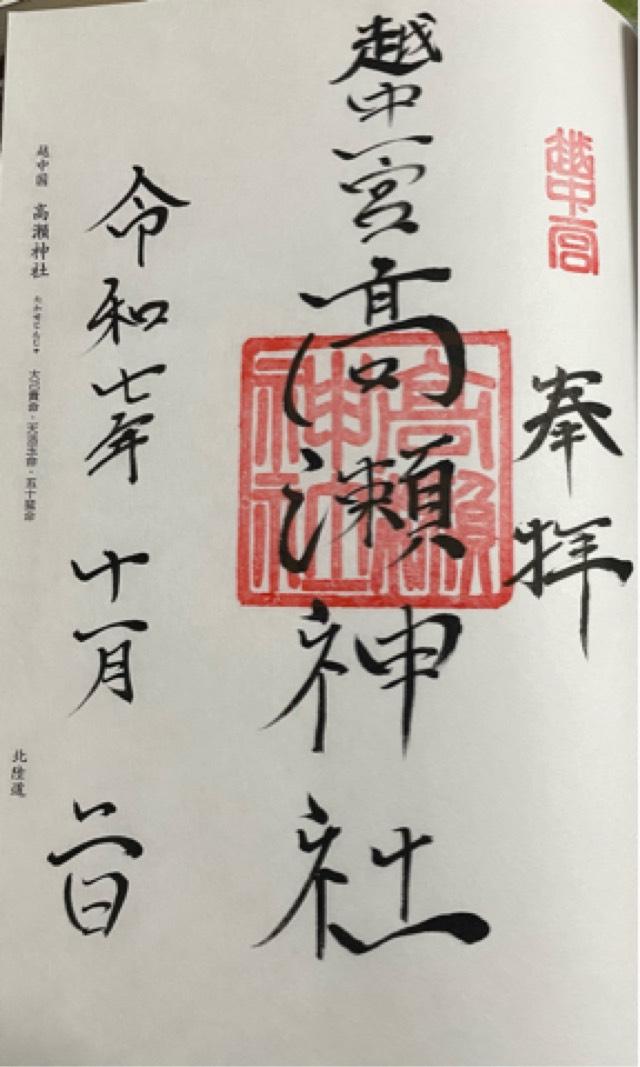 越中一宮
奉拝
越中一宮高瀬神社
高瀬神社
令和七年 十一月 二日
越中国 高瀬神社 たかせじんじゃ 大己貴命・天活玉命・五十猛命
北陸道